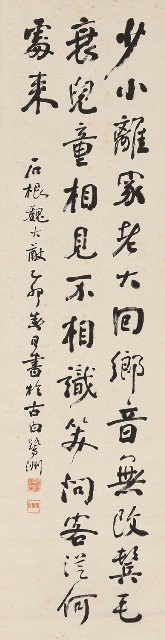 少小離家老大回鄉音無改鬢毛
衰兒童相見不相識笑問客從何
處來
石根魏大猷乙卯春月書於古白鷺洲